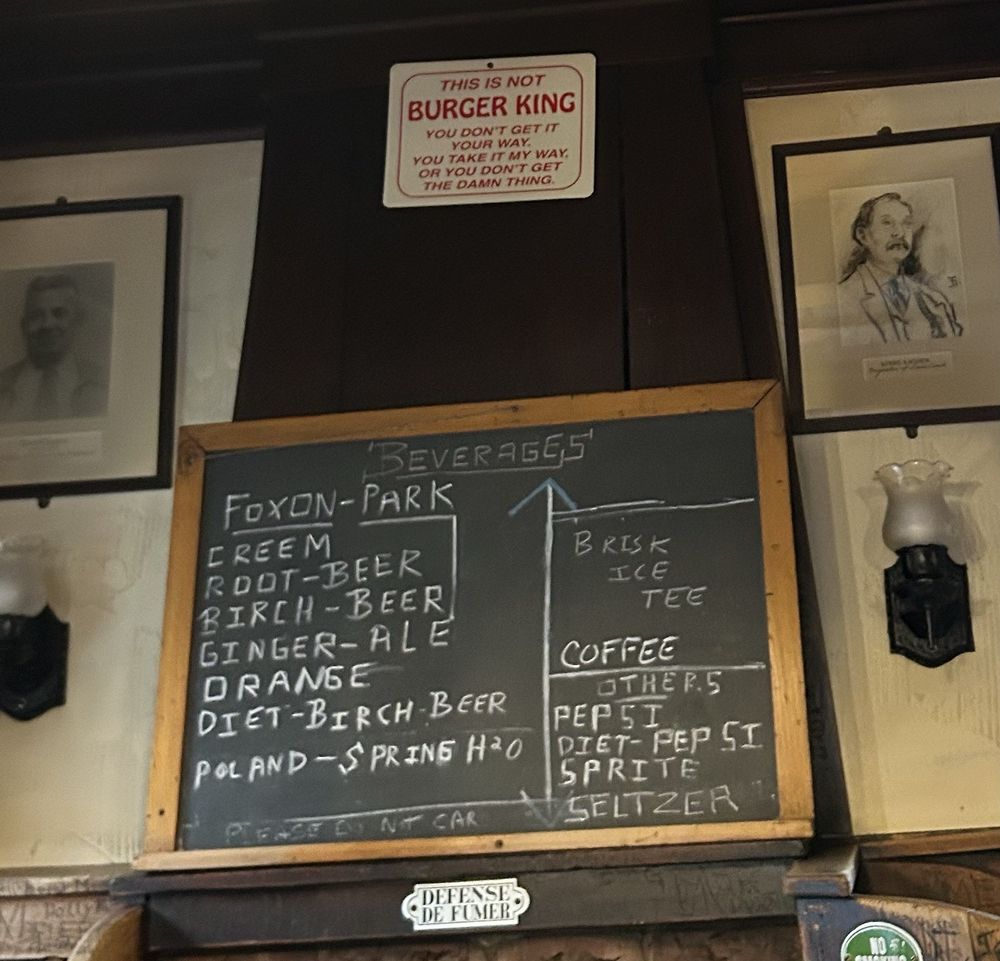 THIS IS NOT
BURGER KING
YOU DON'T GET IT
YOUR WAY.
YOU TAKE IT MY WAY,
OR YOU DON'T GET
THE DAMN THING.
BEVERAGES
FOXON-PARK
CREEM
ROOT-BEER
BIRCH-BEER
GINGER-ALE
ORANGE
DIET-BIRCH-BEER
POLAND-SPRING H2O
PLEASE DO NOT CAR
BRISK
ICE
TEE
COFFEE
OTHERS
PEPSI
DIET-PEPSI
SPRITE
SELTZER
DEFENSE
DE FUMER
NO
SMOKING